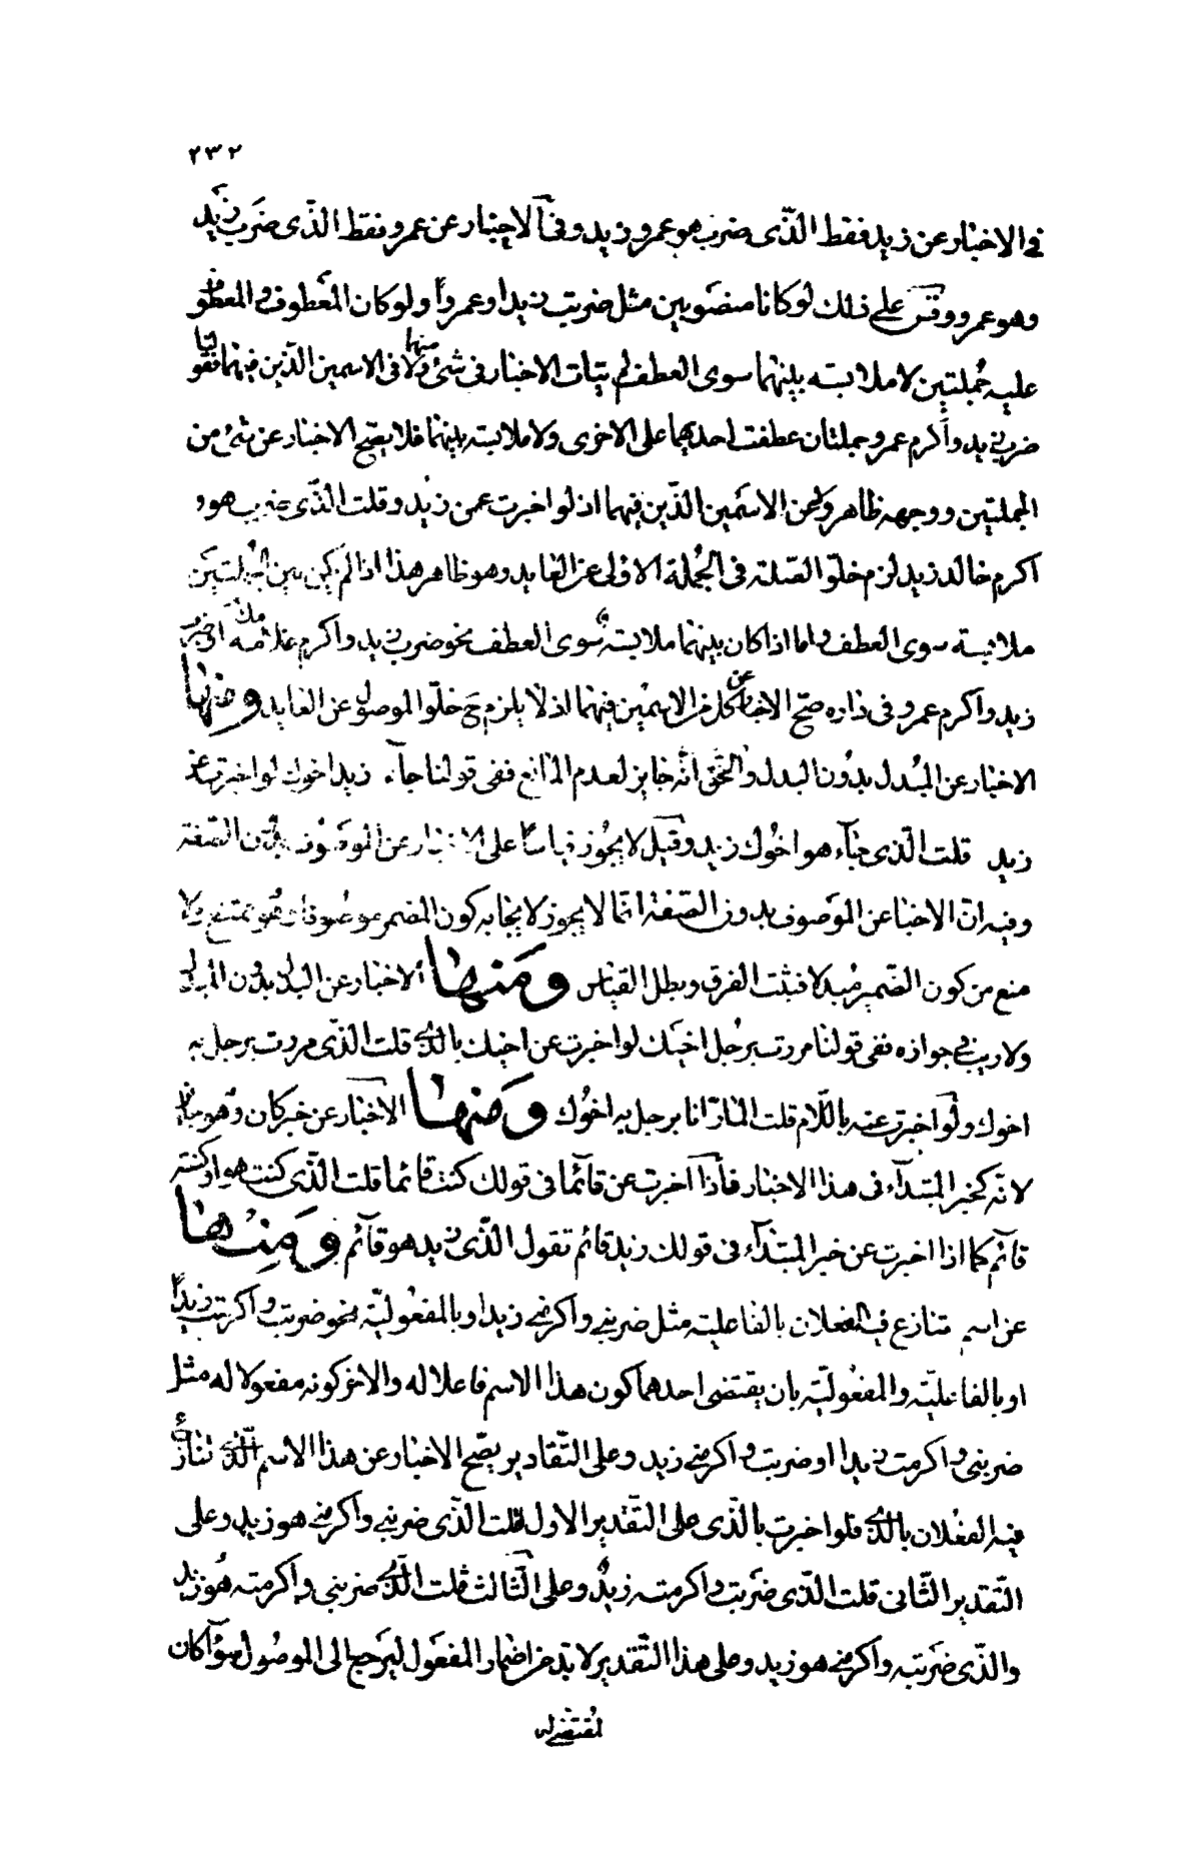 ٢٣٢
فى الاخبار عن زيد فقط الّذى ضرب هو عمرو زيد وفى الاخبار عن عمرو فقط الّذى ضرب زيد
وهو عمرو وقس على ذلك لو كانا منصوبين مثل ضربت زيدا وعمروا ولو كان المعطوف والمعطوف
عليه جملتين لا ملابسته بينهما سوى العطف لم يتات الاخبار فى شئ منهما ولا فى الاسمين الّذين فيهما فقولنا
ضرب زيد وأكرم عمرو جملتان عطفت احديهما على الاخرى ولا ملابسته بينهما فلا يصحّ الاخبار عن شئ من
الجملتين ووجهه ظاهر ولا عن الاسمين الّذين فيهما اذ لو اخبرت عن زيد وقلت الّذى ضرب هو و
اكرم خالد زيد لزم خلوّ الصّلة فى الجُملة الاولى عن العايد وهو ظاهر هذا اذا لم يكن بين الجملتين
ملابسة سوى العطف واما اذا كان بينهما ملابسته سوى العطف نحو ضرب زيد واكرم غلامه او ضرب
زيد واكرم عمرو فى داره صحّ الاخبار عن كل من الاسمين فيهما اذ لا يلزم ح خلوّ الموصول عن العايد ومنها
الاخبار عن المُبدل بدُون البدل والحقّ انّه جايز لعدم المانع ففى قولنا جآء زيد اخوك لو اخبرت عن
زيد قلت الّذى جآء هو اخوك زيد وقيل لا يجُوز قياسًا على الاخبار عن الموصُوف بدون الصّفة
وفيه انّ الاخبا عن الموَصوف بدون الصّفة انّما لا يجوز لايجابه كون المضمر موصُوفا وهُو ممتنع ولا
منع من كون الضّمير مُبدلا فثبت الفرق وبطل القياس ومَنها الاخبار عن البدل بدُون المبدل
ولا ريب فى جوازه ففى قولنا مررت برجُل اخيَك لو اخبرت عن اخيك بالّذى قلت الذّى مررت برجل به
اخوك ولو اخبرت عنه باللّام قلت المارّ انا برجل به اخوُك ومَنها الاخبار عن خبر كان وهُو جايز
لانّه كخبر المبتدآء فى هذا الاخبار فاذا اخبرت عن قآئما فى قولك كنت قائما قلت الّذى كنت هو او كنته
قآئم كما اذا اخبرت عن خبر المبتدآء فى قولك زيد قائم تقول الّذى زيد هو قآئم ومَنِها
عن اسم تنازع فيه الفعلان بالفاعليته مثل ضربنى واكرمنى زيد او بالمفعُوليّه نحو ضربت واكرمت زيداً
او بالفاعليّه والمفعُوليّه بان يقتضى احدهما كون هذا الاسم فاعلا له والاخر كونه مفعولا له مثل
ضربنى واكرمت زيدا او ضربت واكرمنى زيد وعلى التّقادير يصّح الاخبار عن هذا الاسم الّذى تنازع
فيه الفعلان بالّذى فلو اخبرت بالّذى على التقّدير الاول قلت الّذى ضربنى واكرمنى هو زيد وعلى
التّقدير الثّانى قلت الّذى ضَربت واكرمته زيدٌ وعلى الثّالث قلت الّذى ضربنى واكرمته هُو زيد
والّذى ضَربته واكرمنى هو زيد وعلى هذا التّقدير لا بدّ من اضمار المفعُول ليَرجع الى الموصُول سوآء كان
لمُقتضى له